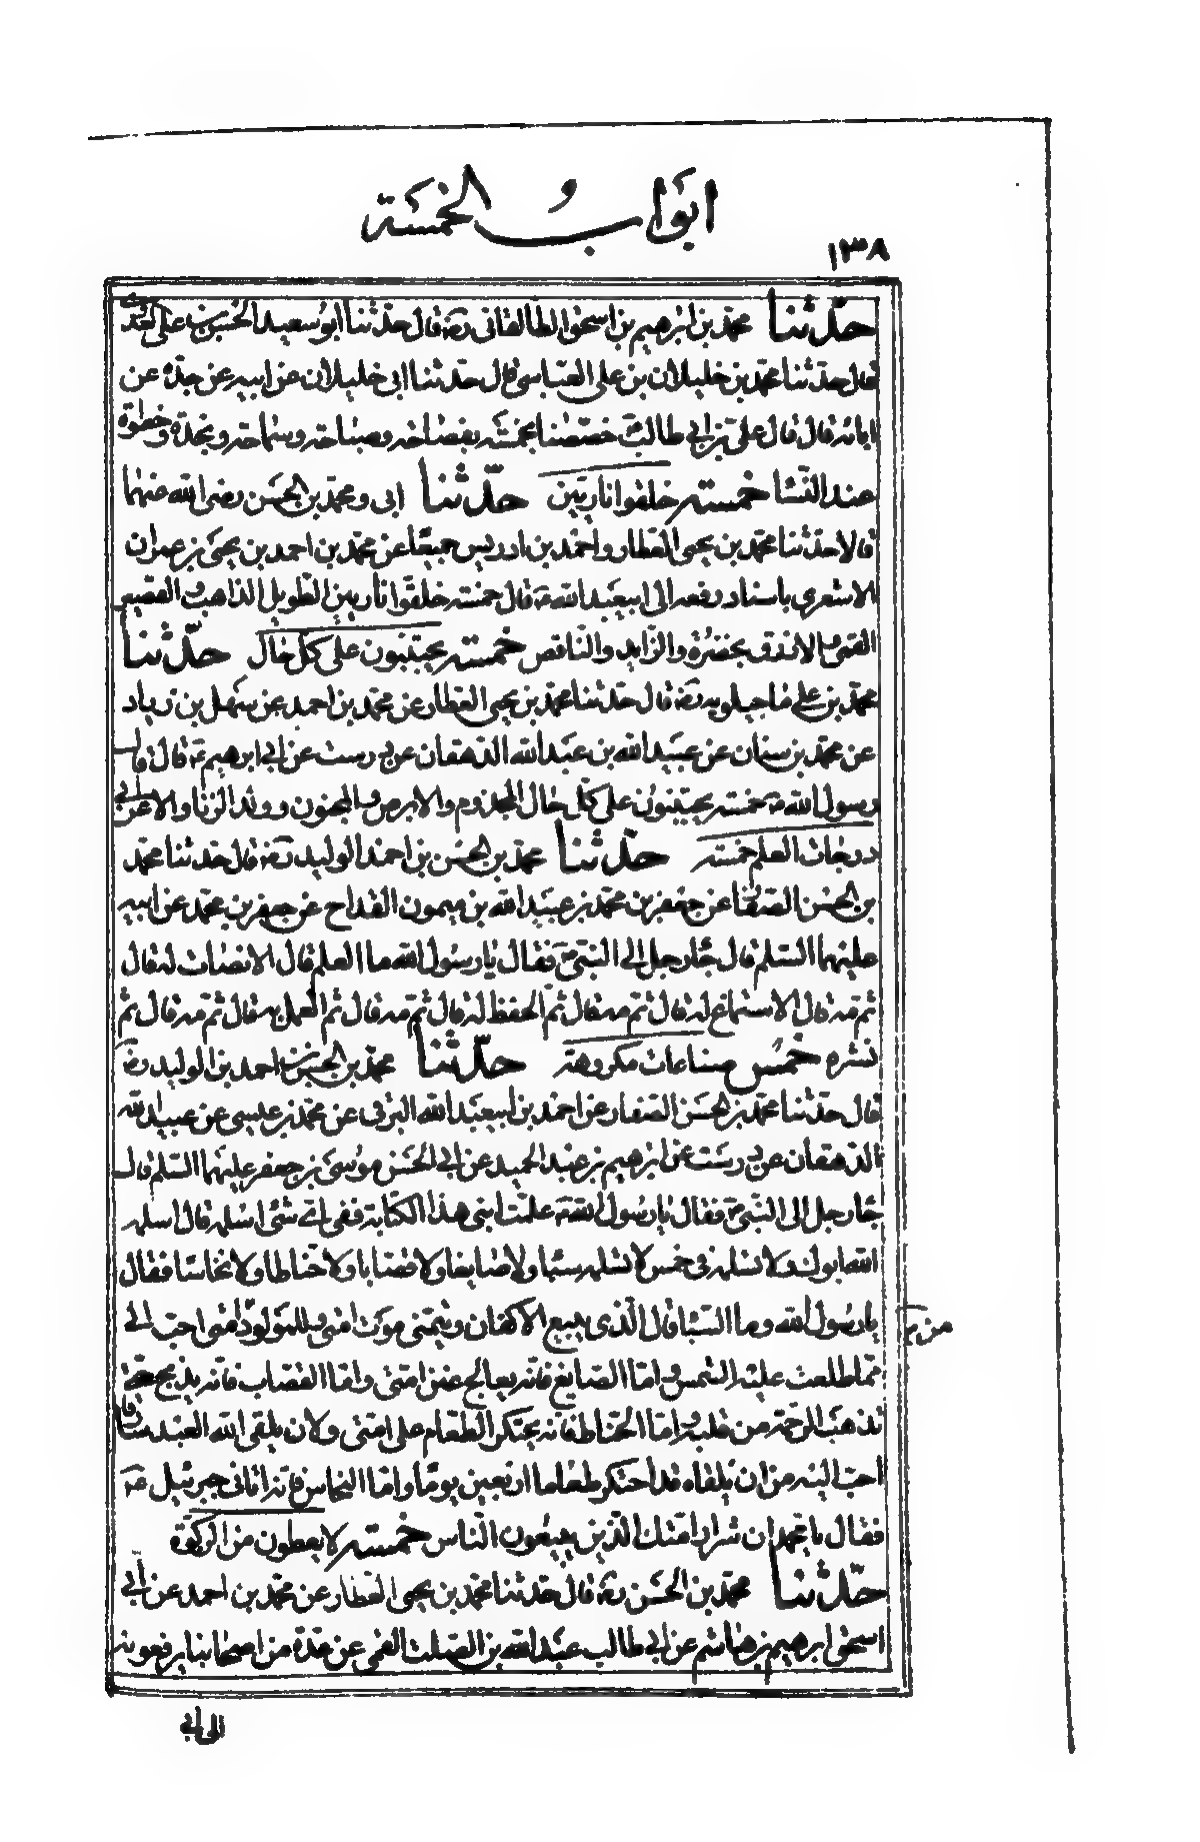 ابواب الخمسة
١٣٨
حدّثنا محمّد بن ابرهيم بن اسحق الطالقانى رضه قال حدّثنا ابو سعيد الحسن بن على العدوى
قال حدّثنا محمّد بن خليلان بن على العبّاسى قال حدّثنا ابى خليلان عن ابيه عن جدّه عن
ابائه قال قال على بن ابي طالب خصّصنا بخمسة بفصاحة وصباحة وسماحة ونجدة وخطوة
عند النّساء خمسة خلقوا ناريّين حدّثنا ابى ومحمّد بن الحسن رضى الله عنهما
قالا حدّثنا محمّد بن يحيى العطار واحمد بن ادريس جميعًا عن محمّد بن احمد بن يحيى بن عمران
الاشعري باسناد رفعه الى ابيعبد الله ع قال خمسة خلقوا ناريين الطّويل الذاهب والقصير
القمئ والازرق بخضرة والزّايد والنّاقص خمسة يجتنبون على كلّ حال حدّثنا
محمّد بن على ماجيلويه رضه قال حدّثنا محمّد بن يحيى العطار عن محمّد بن احمد عن سهل بن زياد
عن محمّد بن سنان عن عبيد الله بن عبد الله الدّهقان عن درست عن ابي ابرهيم ع قال قال
رسول الله ص خمسة يجتنبون على كلّ حال المجذوم والابرص والمجنون وولد الزّنا والاعرابي
درجات العلم خمسة حدّثنا محمّد بن الحسن بن احمد الوليد رضه قال حدّثنا محمّد
بن الحسن الصفّار عن جعفر بن محمّد بن عبيد الله بن ميمون القداح عن جعفر بن محمّد عن ابيه
عليهما السّلم قال جاء رجل الى النّبى ص فقال يا رسول الله ما العلم قال الانصات له قال
ثم مه قال الاستماع له قال ثمّ مه قال ثمّ الحفظ له قال ثمّ مه قال ثم العمل به قال ثمّ مه قال ثم
نشره خمس صناعات مكروهة حدّثنا محمّد بن الحسن بن احمد بن الوليد رضه
قال حدّثنا محمّد بن الحسن الصفار عن احمد بن ابيعبد الله البرقى عن محمّد بن عيسى عن عبيد الله
الدّهقان عن درست عن ابرهيم بن عبد الحميد عن ابي الحسن موسى بن جعفر عليهما السّلم قال
جاء رجل الى النّبى ص فقال يا رسول الله ص علّمت ابنى هذا الكتابة ففى اىّ شئ اسلمه قال اسلمه
لله ابوك ولا تسلمه فى خمس لا تسلمه سبّاء ولا صايغا ولا قصّابا ولا حنّاطا ولا نخّاسا فقال
يا رسول الله وما السّبّا قال الّذى يبيع الاكفان ويتمنّى موت امتى وللمولود امتى احبّ الىّ
من
ممّا طلعت عليه الشّمس وامّا الصّايغ فانّه يعالج غبن امتى وامّا القصّاب فانّه يذبح حتى
تذهب الرّحمة من قلبه وامّا الحنّاط فانّه يحتكر الطّعام على امتى ولان يلقى الله العبد سارقا
احبّ اليه من ان يلقاه قد احتكر طعاما اربعين يومًا وامّا النّخاس فانّه اتانى جبرئيل ع
فقال يا محمّد ان شرار امّتك الّذين يبيعون النّاس خمسة لا يعطون من الزّكوة
حدّثنا محمّد بن الحسن رضه قال حدّثنا محمّد بن يحيى العطار عن محمّد بن احمد عن ابي
اسحق ابرهيم بن هاشم عن ابي طالب عبد الله بن الصّلت القمى عن عدّة من اصحابنا يرفعونه
الى ابى